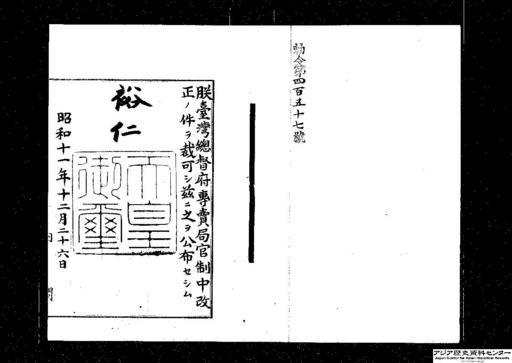 勅令第四百五十七號
朕臺灣總督府專賣局官制中改
正ノ件ヲ裁可シ茲ニ之ヲ公布セシム
裕仁
天皇
御璽
昭和十一年十二月二十六日
アジア歴史資料センター
Japan Center for Asian Historical Records